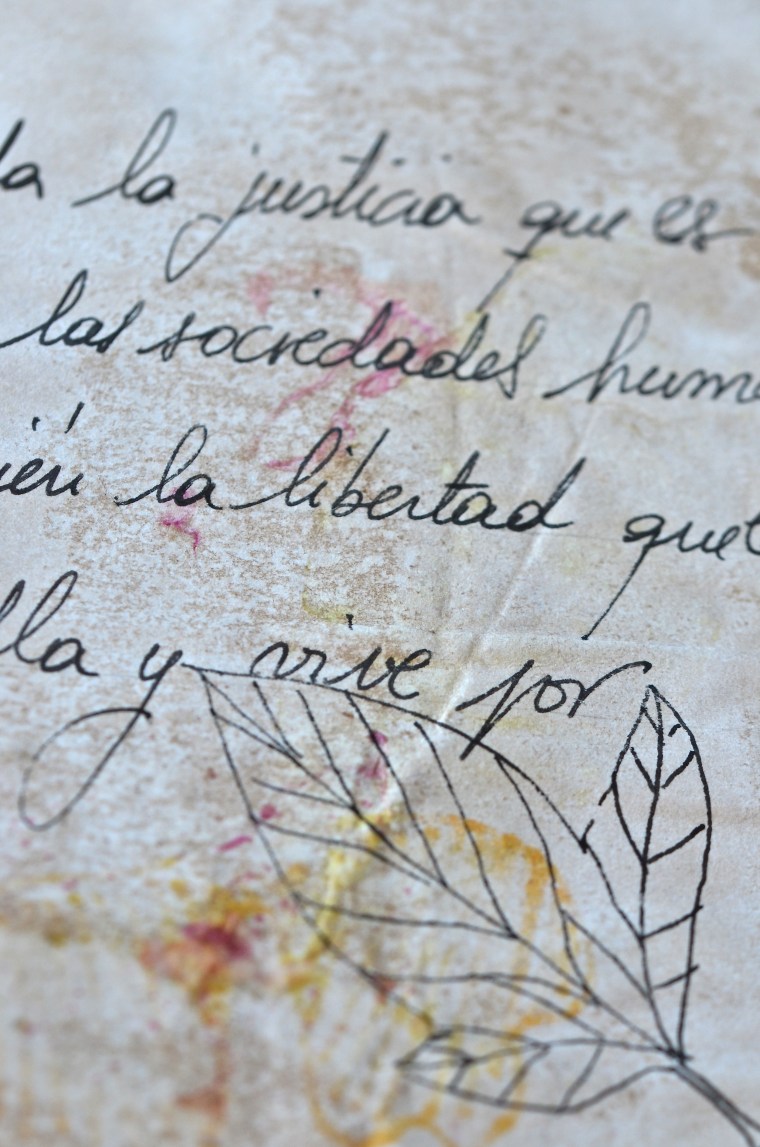 la la justicia que es
las sociedades huma
ién la libertad que
lla y vive por